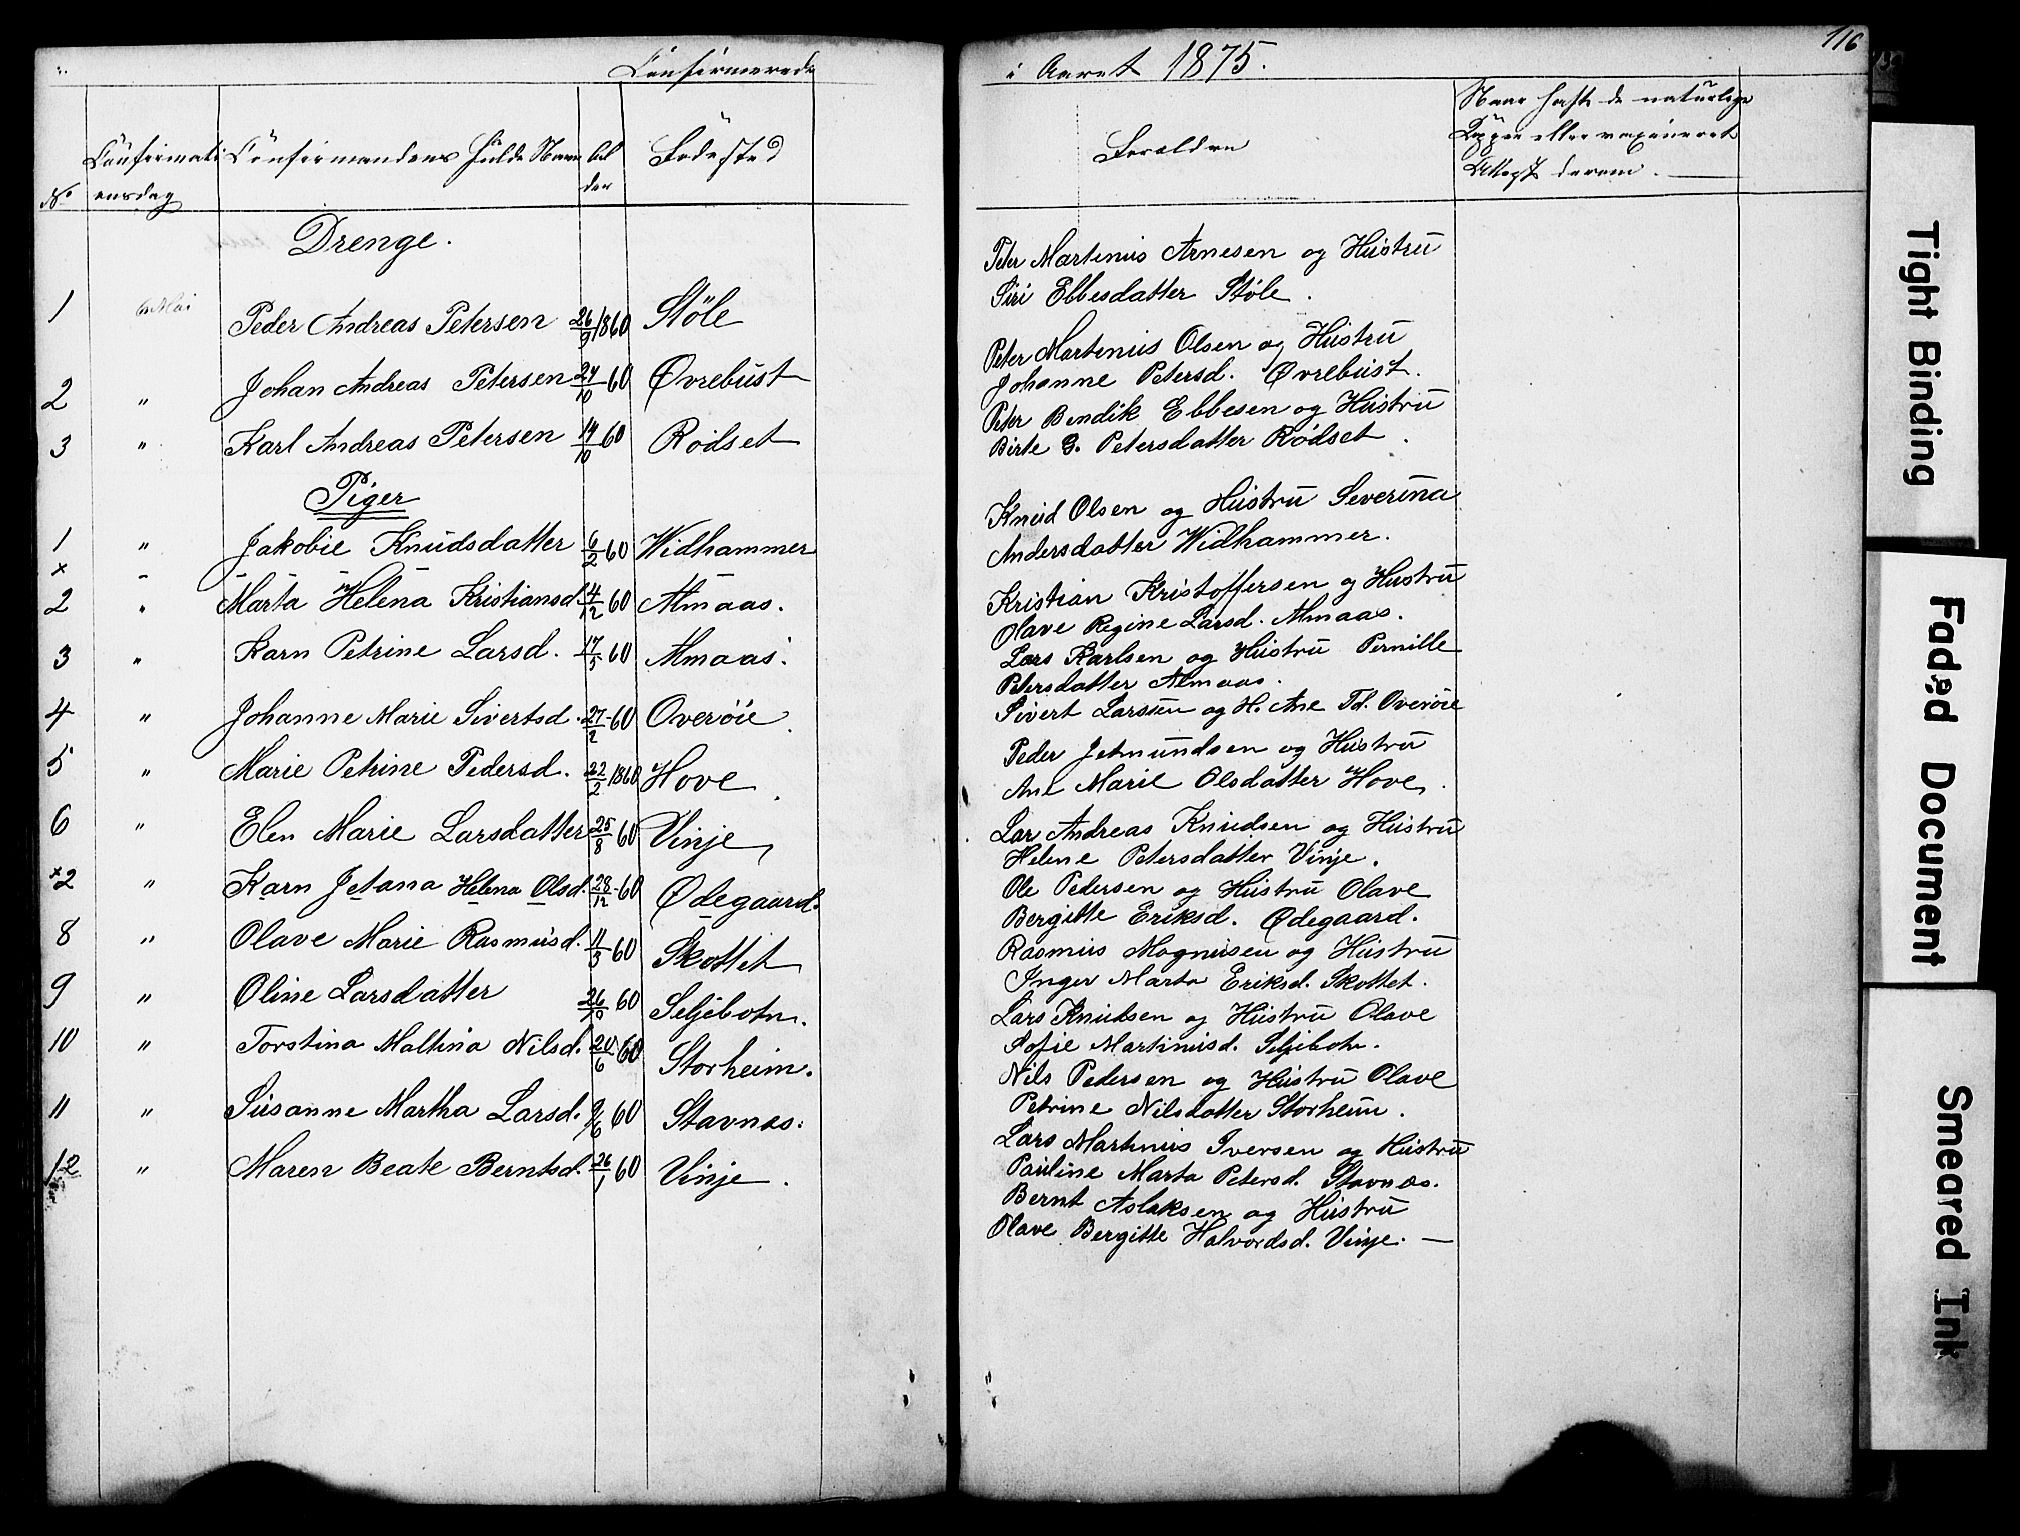 Confirmerede
i Aaret 1875.
116
No
Confirmati
onsdag
Confirmandens fulde Navn
Al
der
Fødested
Forældre
Naar hafte de naturlige
Kopper eller vaxineret
Attest derom.
Drenge.
1 Mai Peder Andreas Petersen 26/9 1860 Støle
Peter Martinus Arnesen og Hustru
Siri Ebbesdatter Støle.
2 " Johan Andreas Petersen 24/10 60 Øvrebust
Peter Martinius Olsen og Hustru
Johanne Petersd. Øvrebust.
3 " Karl Andreas Petersen 14/10 60 Rødset
Peter Bendik Ebbesen og Hustru
Birte G. Petersdatter Rødset.
Piger
1 " Jakobie Knudsdatter 6/2 60 Widhammer
Knud Olsen og Hustru Severina
Andersdatter Widhammer.
x
2 " Marta Helena Kristiansd. 4/12 60 Almaas.
Kristian Kristoffersen og Hustru
Olave Regine Larsd. Almaas.
3 " Karn Petrine Larsd. 17/5 60 Almaas.
Lars Karlsen og Hustru Pernille
Petersdatter Almaas.
4 " Johanne Marie Sivertsd. 27/2 60 Overøie.
Sivert Larssen og H. Ane Td. Overøie
5 " Marie Petrine Pedersd. 22/2 1860 Hove
Peder Jetmundsen og Hustru
Ane Marie Olsdatter Hove.
6 " Elen Marie Larsdatter 25/8 60 Vinje
Lar Andreas Knudsen og Hustru
Helene Petersdatter Vinje.
x2 " Karn Jetana Helena Olsd. 28/12 60 Ødegaard.
Ole Pedersen og Hustru Olave
Bergitte Eriksd. Ødegaard.
8 " Olave Marie Rasmusd. 11/3 60 Skottet
Rasmus Magnusen og Hustru
Inger Marta Eriksd. Skottet.
9 " Oline Larsdatter 26/10 60 Seljebotn.
Lars Knudsen og Hustru Olave
Sofie Martinusd. Seljebotn.
10 " Torstina Maltina Nilsd. 20/6 60 Storheim.
Nils Pedersen og Hustru Olave
Petrine Nilsdatter Storheim.
11 " Susanne Martha Larsd. 9/6 60 Stavnes.
Lars Martinus Iversen og Hustru
Pauline Marta Petersd. Stavnes.
12 " Maren Beate Berntsd. 26/1 60 Vinje.
Bernt Aslaksen og Hustru
Olave Bergitte Halvordsd. Vinje.
Tight Binding
Faded Document
Smeared Ink